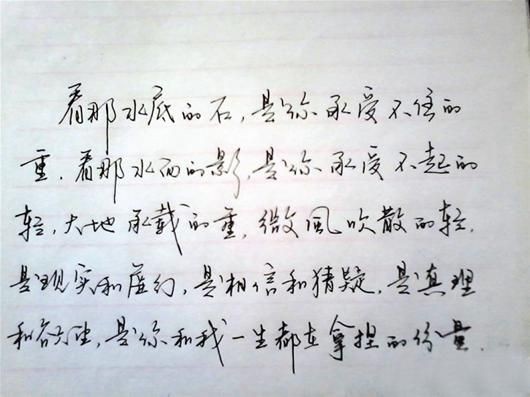 看那水底的石,是你承受不住的
重.看那水面的影,是你承受不起的
轻,大地承载的重,微风吹散的轻.
是现实和虚幻,是相信和猜疑,是真理
和谷欠生,是你和我一生都在拿捏的份量.